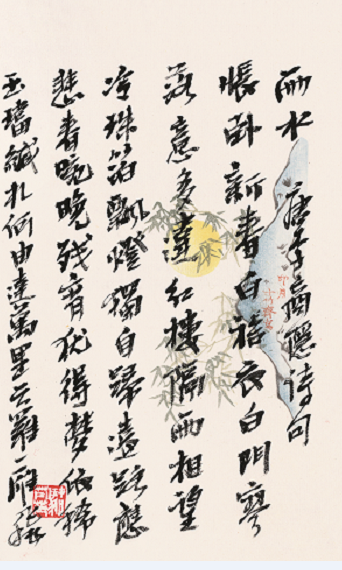 雨水 唐李商隱詩句
悵卧新春白袷衣白門寥
落意多違紅樓隔雨相望
冷珠箔飄燈獨自歸遠路應
悲春晼晚残宵犹得夢依稀
玉璫緘札何由達萬里云羅一雁飛